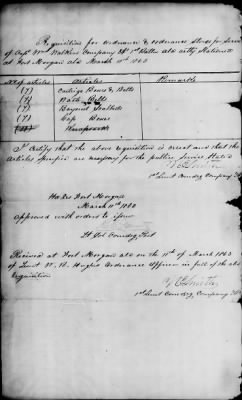 Requisition for ordnance & ordnance stores for service
of Capt Wm Walkers Company 2d 1st Battn Ala arty Stationed
at Fort Morgan ala March 11th 1863
No of articles Articles Remarks
(7) Cartrige Boxes & Belts
(7) Waist Belts
(7) Bayonet Scabbards
(7) Cap Boxes
Knapsacks
I Certify that the above requisition is correct and that the
Articles specified are necessary for the public Service Stated
1st Lieut Comdg Company
Hd Qrs Fort Morgan
March 11th 1863
Approved with orders to issue
Lt Col Comdg Fort
Received at Fort Morgan ala on the 11th of March 1863
of Lieut W. R. Hughes Ordnance Officer in full of the above
requisition
1st Lieut Comdg Company